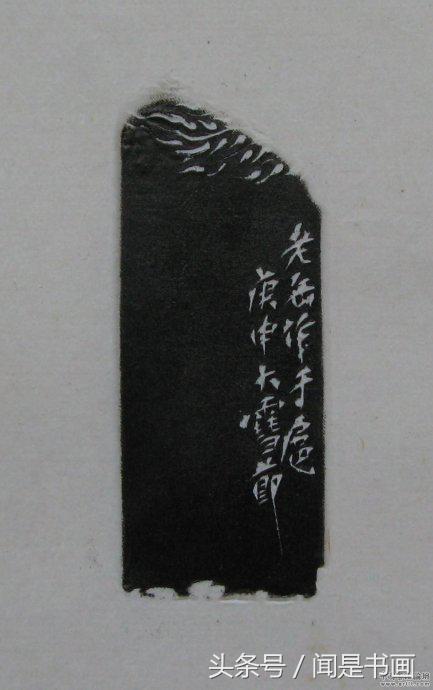 老岳作于扈
庚申大雪節
头条号 / 闻是书画